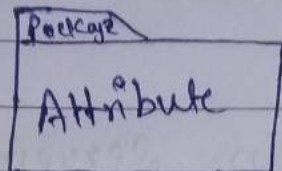 Package
Attribute